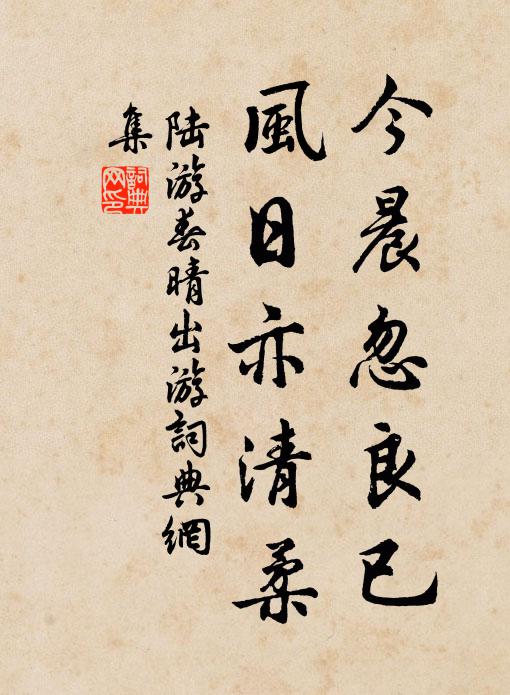 今晨忽良已
風日亦清柔
陆游春晴出游詞典網
集
詞典
网印